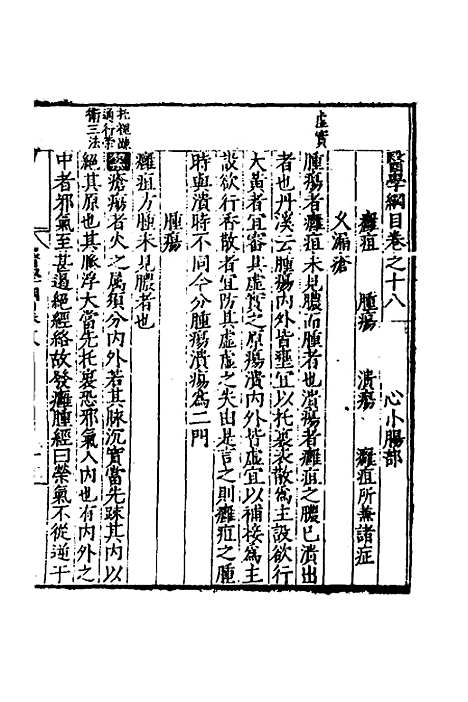 醫學綱目卷之十八　心小腸部
癰疽　腫瘍　潰瘍　癰疽所兼諸症
久漏瘡
虛實
腫瘍者癰疽未見膿而腫者也潰瘍者癰疽之膿已潰出
者也丹溪云腫瘍內外皆壅宜以托裏表散為主設欲行
大黃者宜審其虛實之原瘍潰內外皆虛宜以補接為主
設欲行香散者宜防其虛虛之失由是言之則癰疽之腫
時與潰時不同今分腫瘍潰瘍為二門
腫瘍
癰疽方腫未見膿者也
托裡疎
通行榮
衛三法
瘡瘍者火之属須分內外若其脉沉實當先疎其內以
絕其原也其脉浮大當先托裏恐邪氣入內也有內外之
中者邪氣至甚遏絕經絡故發癰腫經曰榮氣不從逆于